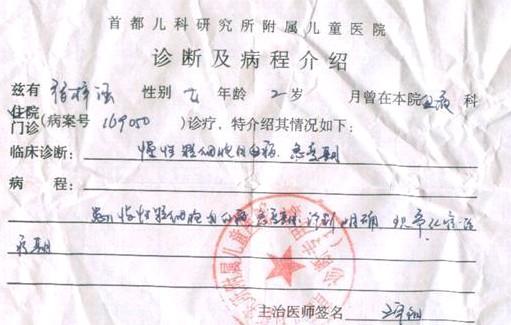 首都儿科研究所附属儿童医院
诊断及病程介绍
兹有 性别 女 年龄 2 岁 月曾在本院 血液 科
住院
门诊(病案号 169050 )诊疗，特介绍其情况如下：
临床诊断： 慢性粒细胞白血病. 急变期
病 程：
患儿慢性粒细胞白血病 急变期 诊断明确 现章化疗
疗期
主治医师签名